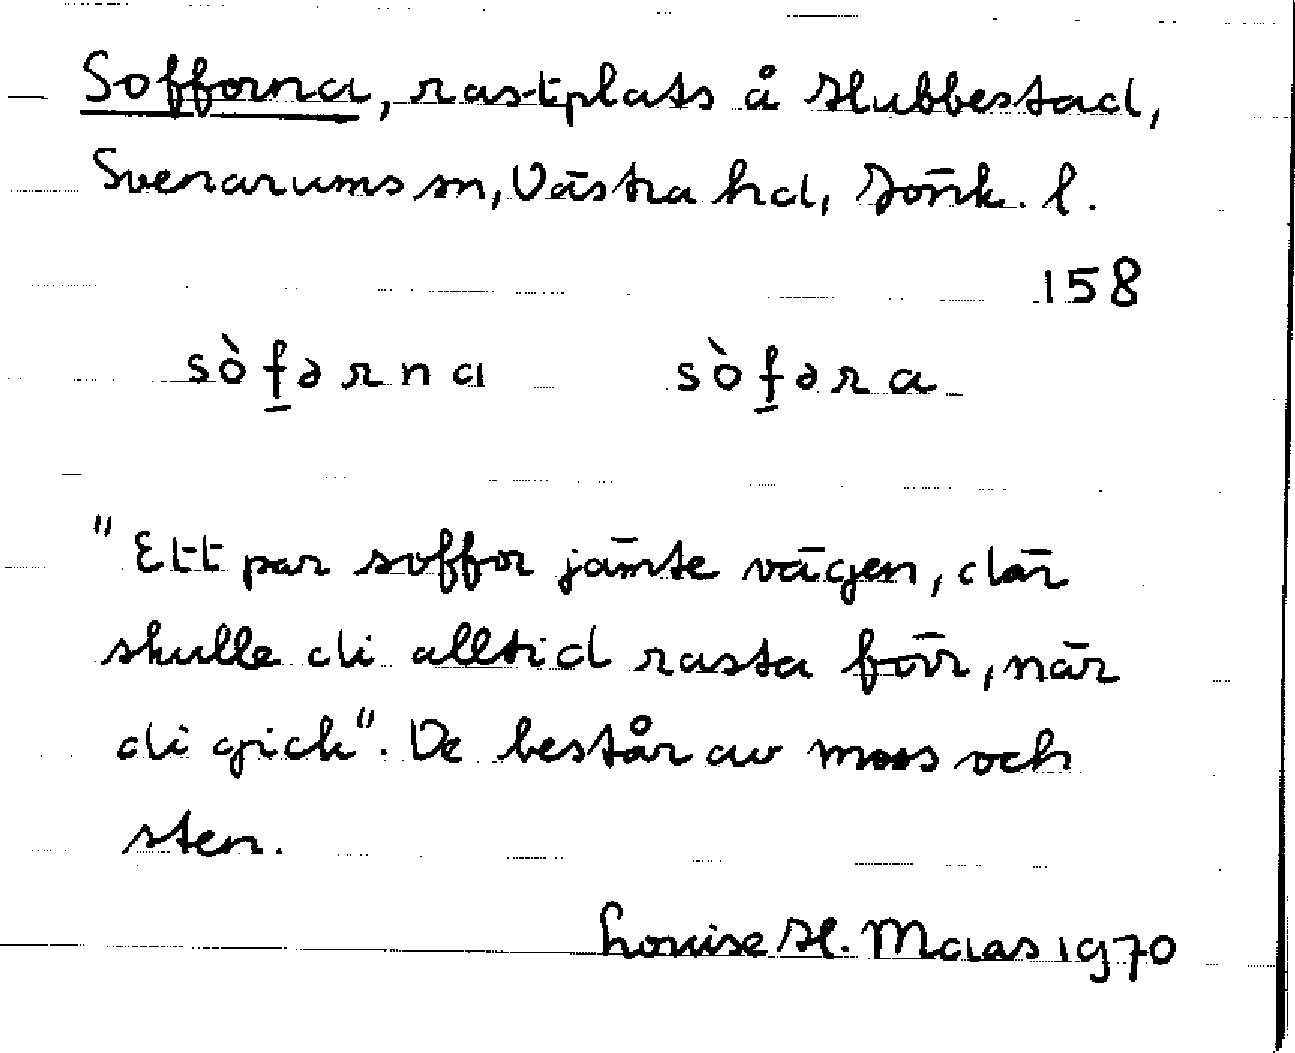 Sofforna, rastplats å Klubbestad,
Svenarums sn, Västra hd, Jönk. l.
158
sòf̱ərna sòf̱əra
"Ett par soffor jämte vägen, där
skulle di alltid rasta förr, när
di gick". De består av moss och
sten.
Louise H. Maas 1970